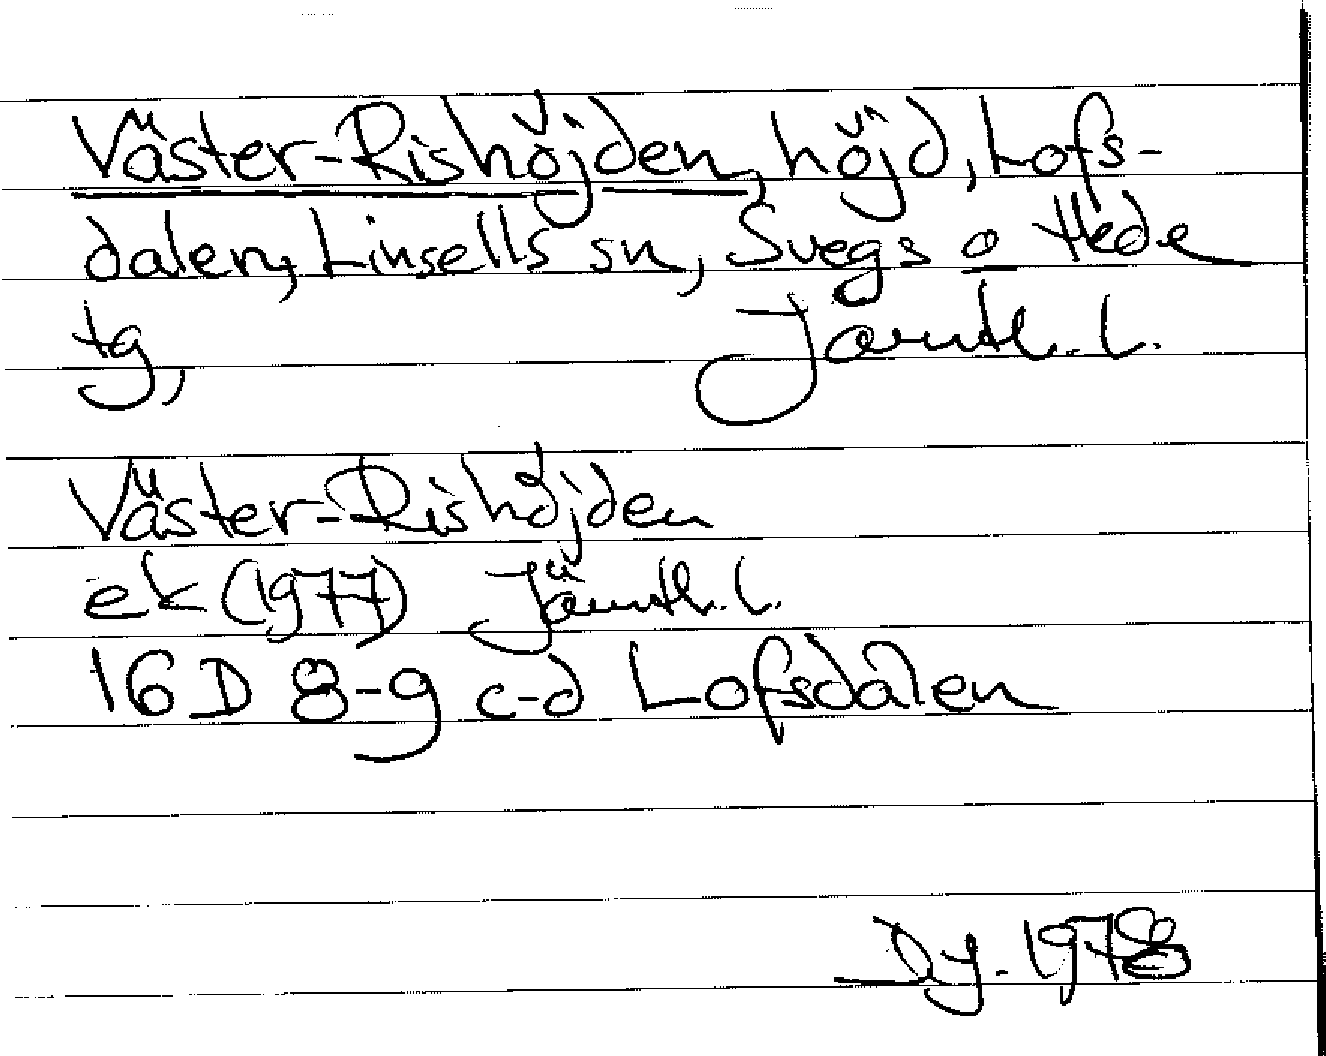 Väster-Rishöjden, höjd, Lofs-
dalen, Linsells sn, Svegs o Hede
tg, Jämtl. l.
Väster-Rishöjden
ek (1977) Jämtl. l.
16 D 8-9 c-d Lofsdalen
1978